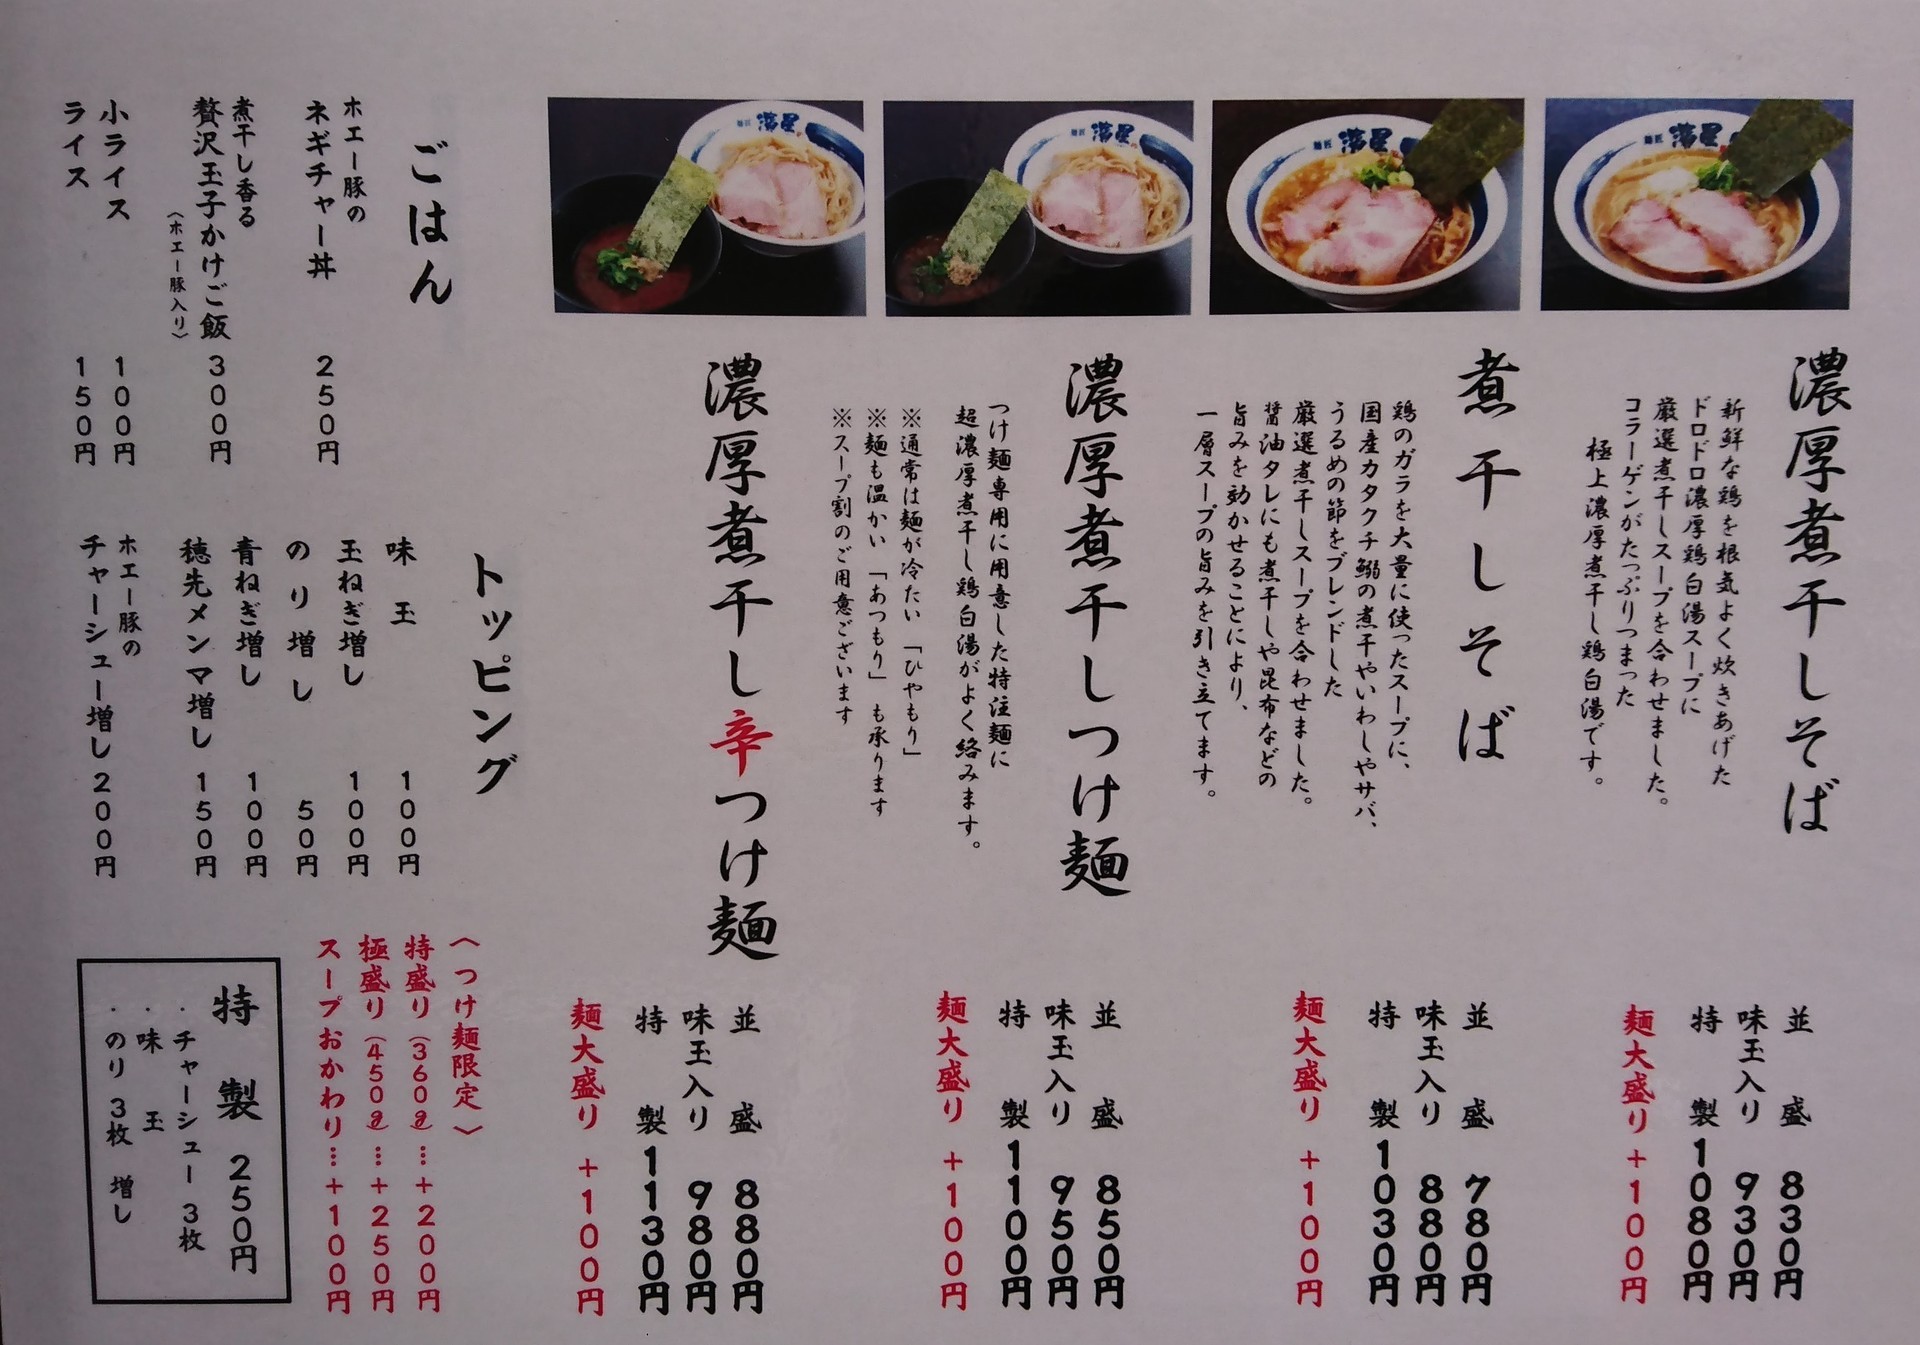 濃厚煮干しそば
新鮮な鶏を根気よく炊きあげた
ドロドロ濃厚鶏白湯スープに
厳選煮干しスープを合わせました。
コラーゲンがたっぷりつまった
極上濃厚煮干し鶏白湯です。
並盛 830円
味玉入り 930円
特製 1080円
麺大盛り +100円
煮干しそば
鶏のガラを大量に使ったスープに、
国産カタクチ鰯の煮干やいわしやサバ、
うるめの節をブレンドした
厳選煮干しスープを合わせました。
醤油タレにも煮干しや昆布などの
旨みを効かせることにより、
一層スープの旨みを引き立てます。
並盛 780円
味玉入り 880円
特製 1030円
麺大盛り +100円
濃厚煮干しつけ麺
つけ麺専用に用意した特注麺に
超濃厚煮干し鶏白湯がよく絡みます。
※通常は麺が冷たい「ひやもり」
※麺も温かい「あつもり」も承ります
※スープ割のご用意ございます
並盛 850円
味玉入り 950円
特製 1100円
麺大盛り +100円
濃厚煮干し辛つけ麺
並盛 880円
味玉入り 980円
特製 1130円
麺大盛り +100円
ごはん
ホエー豚の
ネギチャー丼 250円
煮干し香る
贅沢玉子かけご飯 300円
(ホエー豚入り)
小ライス 100円
ライス 150円
トッピング
味玉 100円
玉ねぎ増し 100円
のり増し 50円
青ねぎ増し 100円
穂先メンマ増し 150円
ホエー豚の
チャーシュー増し 200円
〈つけ麺限定〉
特盛り(360g)…+200円
極盛り(450g)…+250円
スープおかわり…+100円
特製 250円
・チャーシュー 3枚
・味玉
・のり 3枚 増し